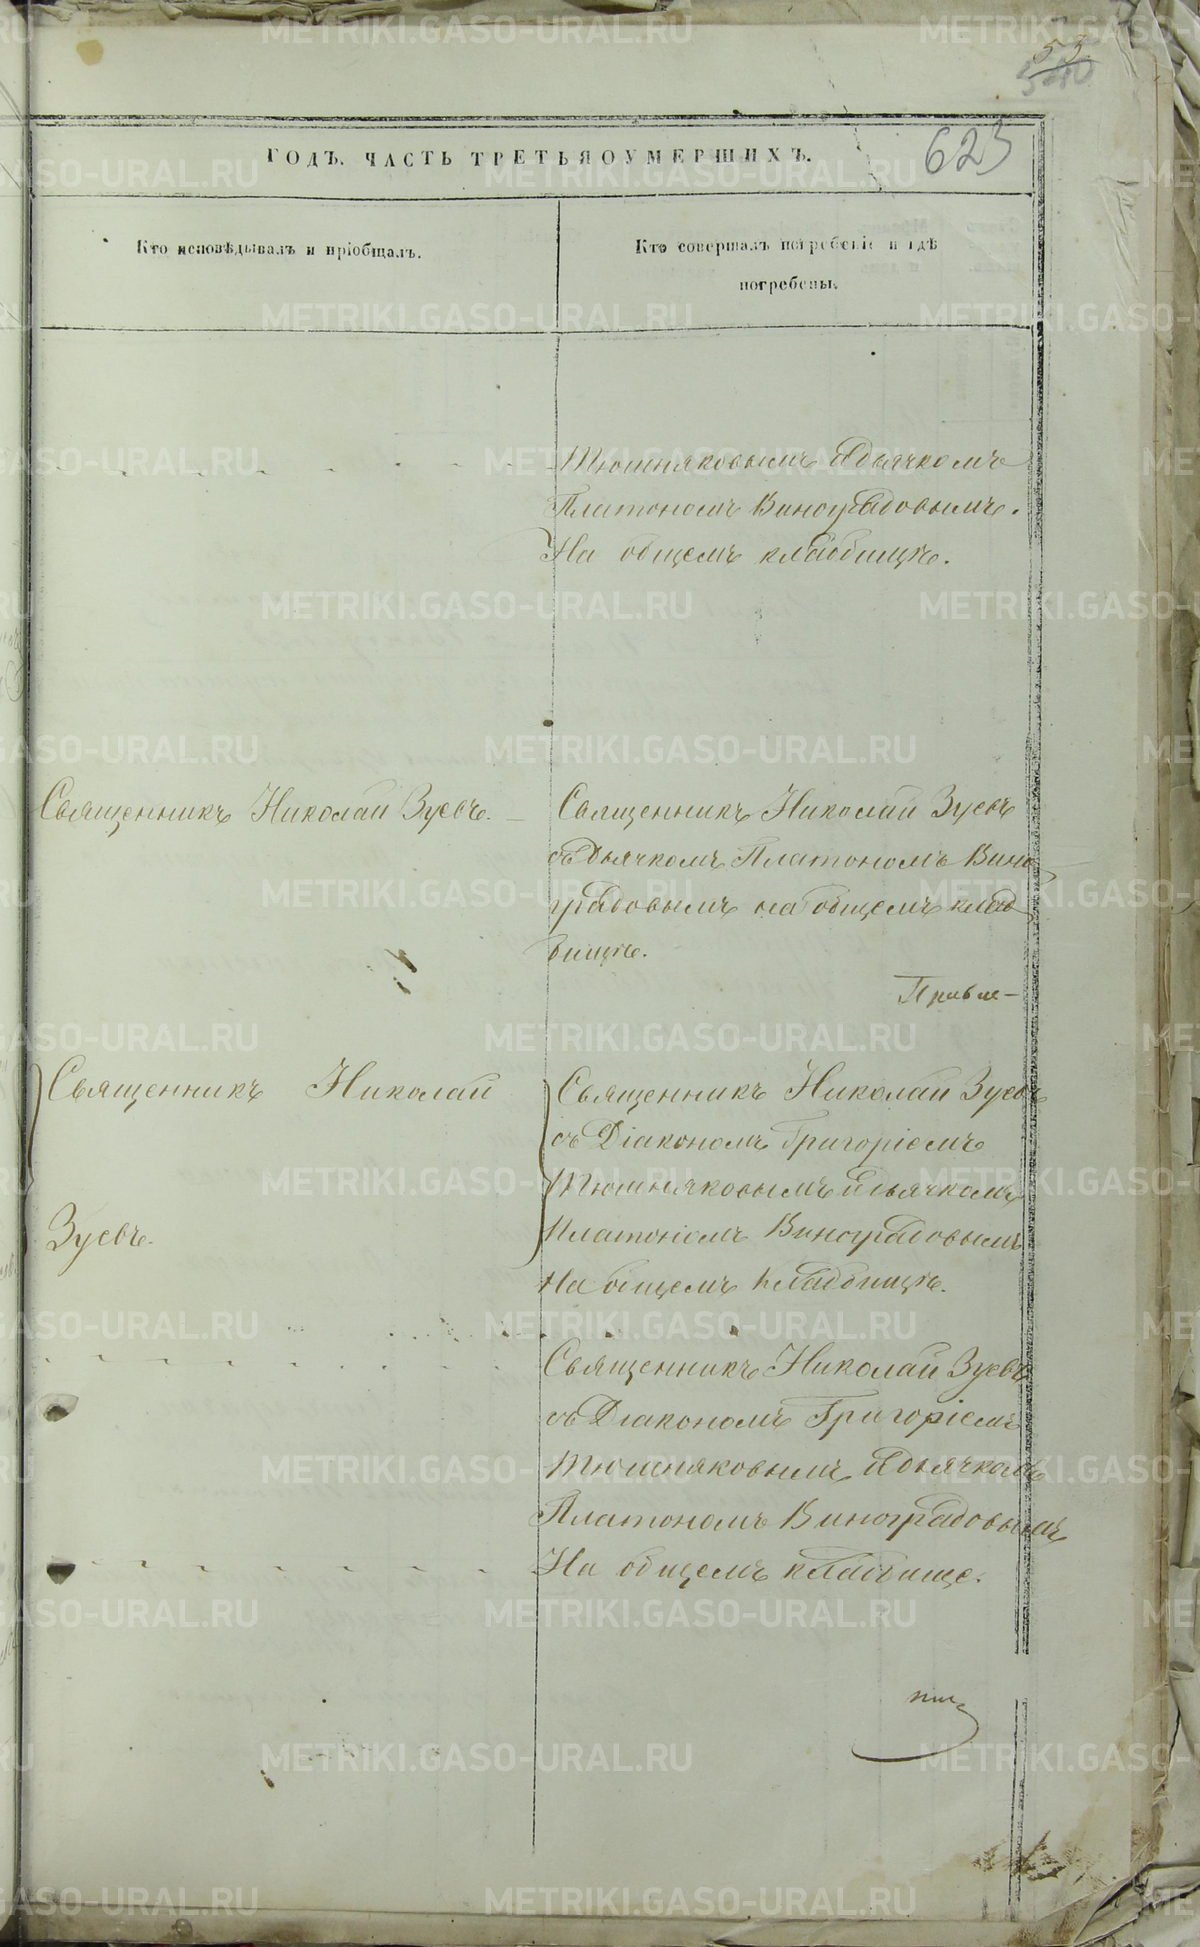 53
623
ГОДЪ. ЧАСТЬ ТРЕТЬЯ О УМЕРШИХЪ.
Кто исповѣдывалъ и пріобщалъ.
Кто совершалъ погребеніе и гдѣ
погребены.
Тюшняковымъ и Дьячкомъ
Платономъ Виноградовымъ.
На общемъ кладбищѣ.
Священникъ Николай Зуевъ.
Священникъ Николай Зуевъ
съ Дьячкомъ Платономъ Вино
градовымъ на общемъ клад
бищѣ.
Священникъ Николай
Зуевъ.
Священникъ Николай Зуевъ
съ Діакономъ Григоріемъ
Тюшняковымъ и дьячкомъ
Платономъ Виноградовымъ
На общемъ кладбищѣ.
Священникъ Николай Зуевъ
съ Діакономъ Григоріемъ
Тюшняковымъ и дьячкомъ
Платономъ Виноградовымъ
На общемъ кладбище.
METRIKI.GASO-URAL.RU